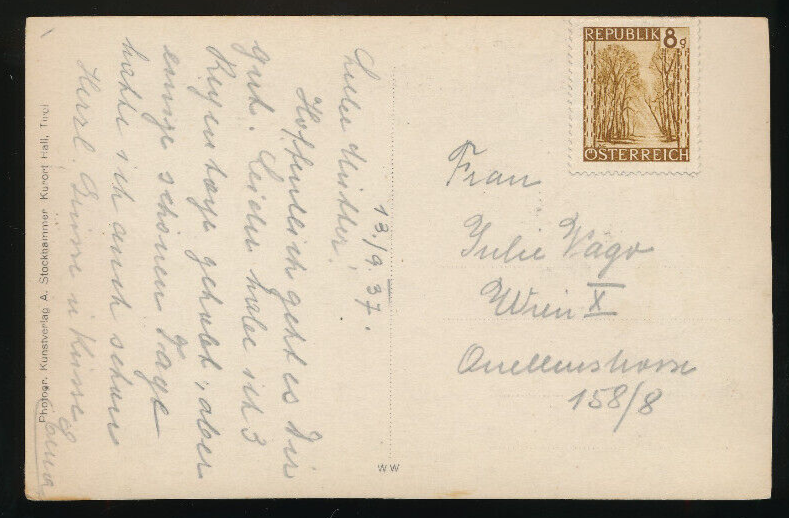 13./9.37.
Liebe Mutter!
Hoffentlich geht es Dir
gut. Leider habe ich 3
Regentage gehabt, aber
einige schönen Tage
hatte ich auch schon
Herzl. Grüsse u Küsse
REPUBLIK 8g
ÖSTERREICH
Frau
Julie Vago
Wien X
Quellenstrasse
158/8
Photogr. Kunstverlag A. Stockhammer, Kurort Hall, Tirol
WW